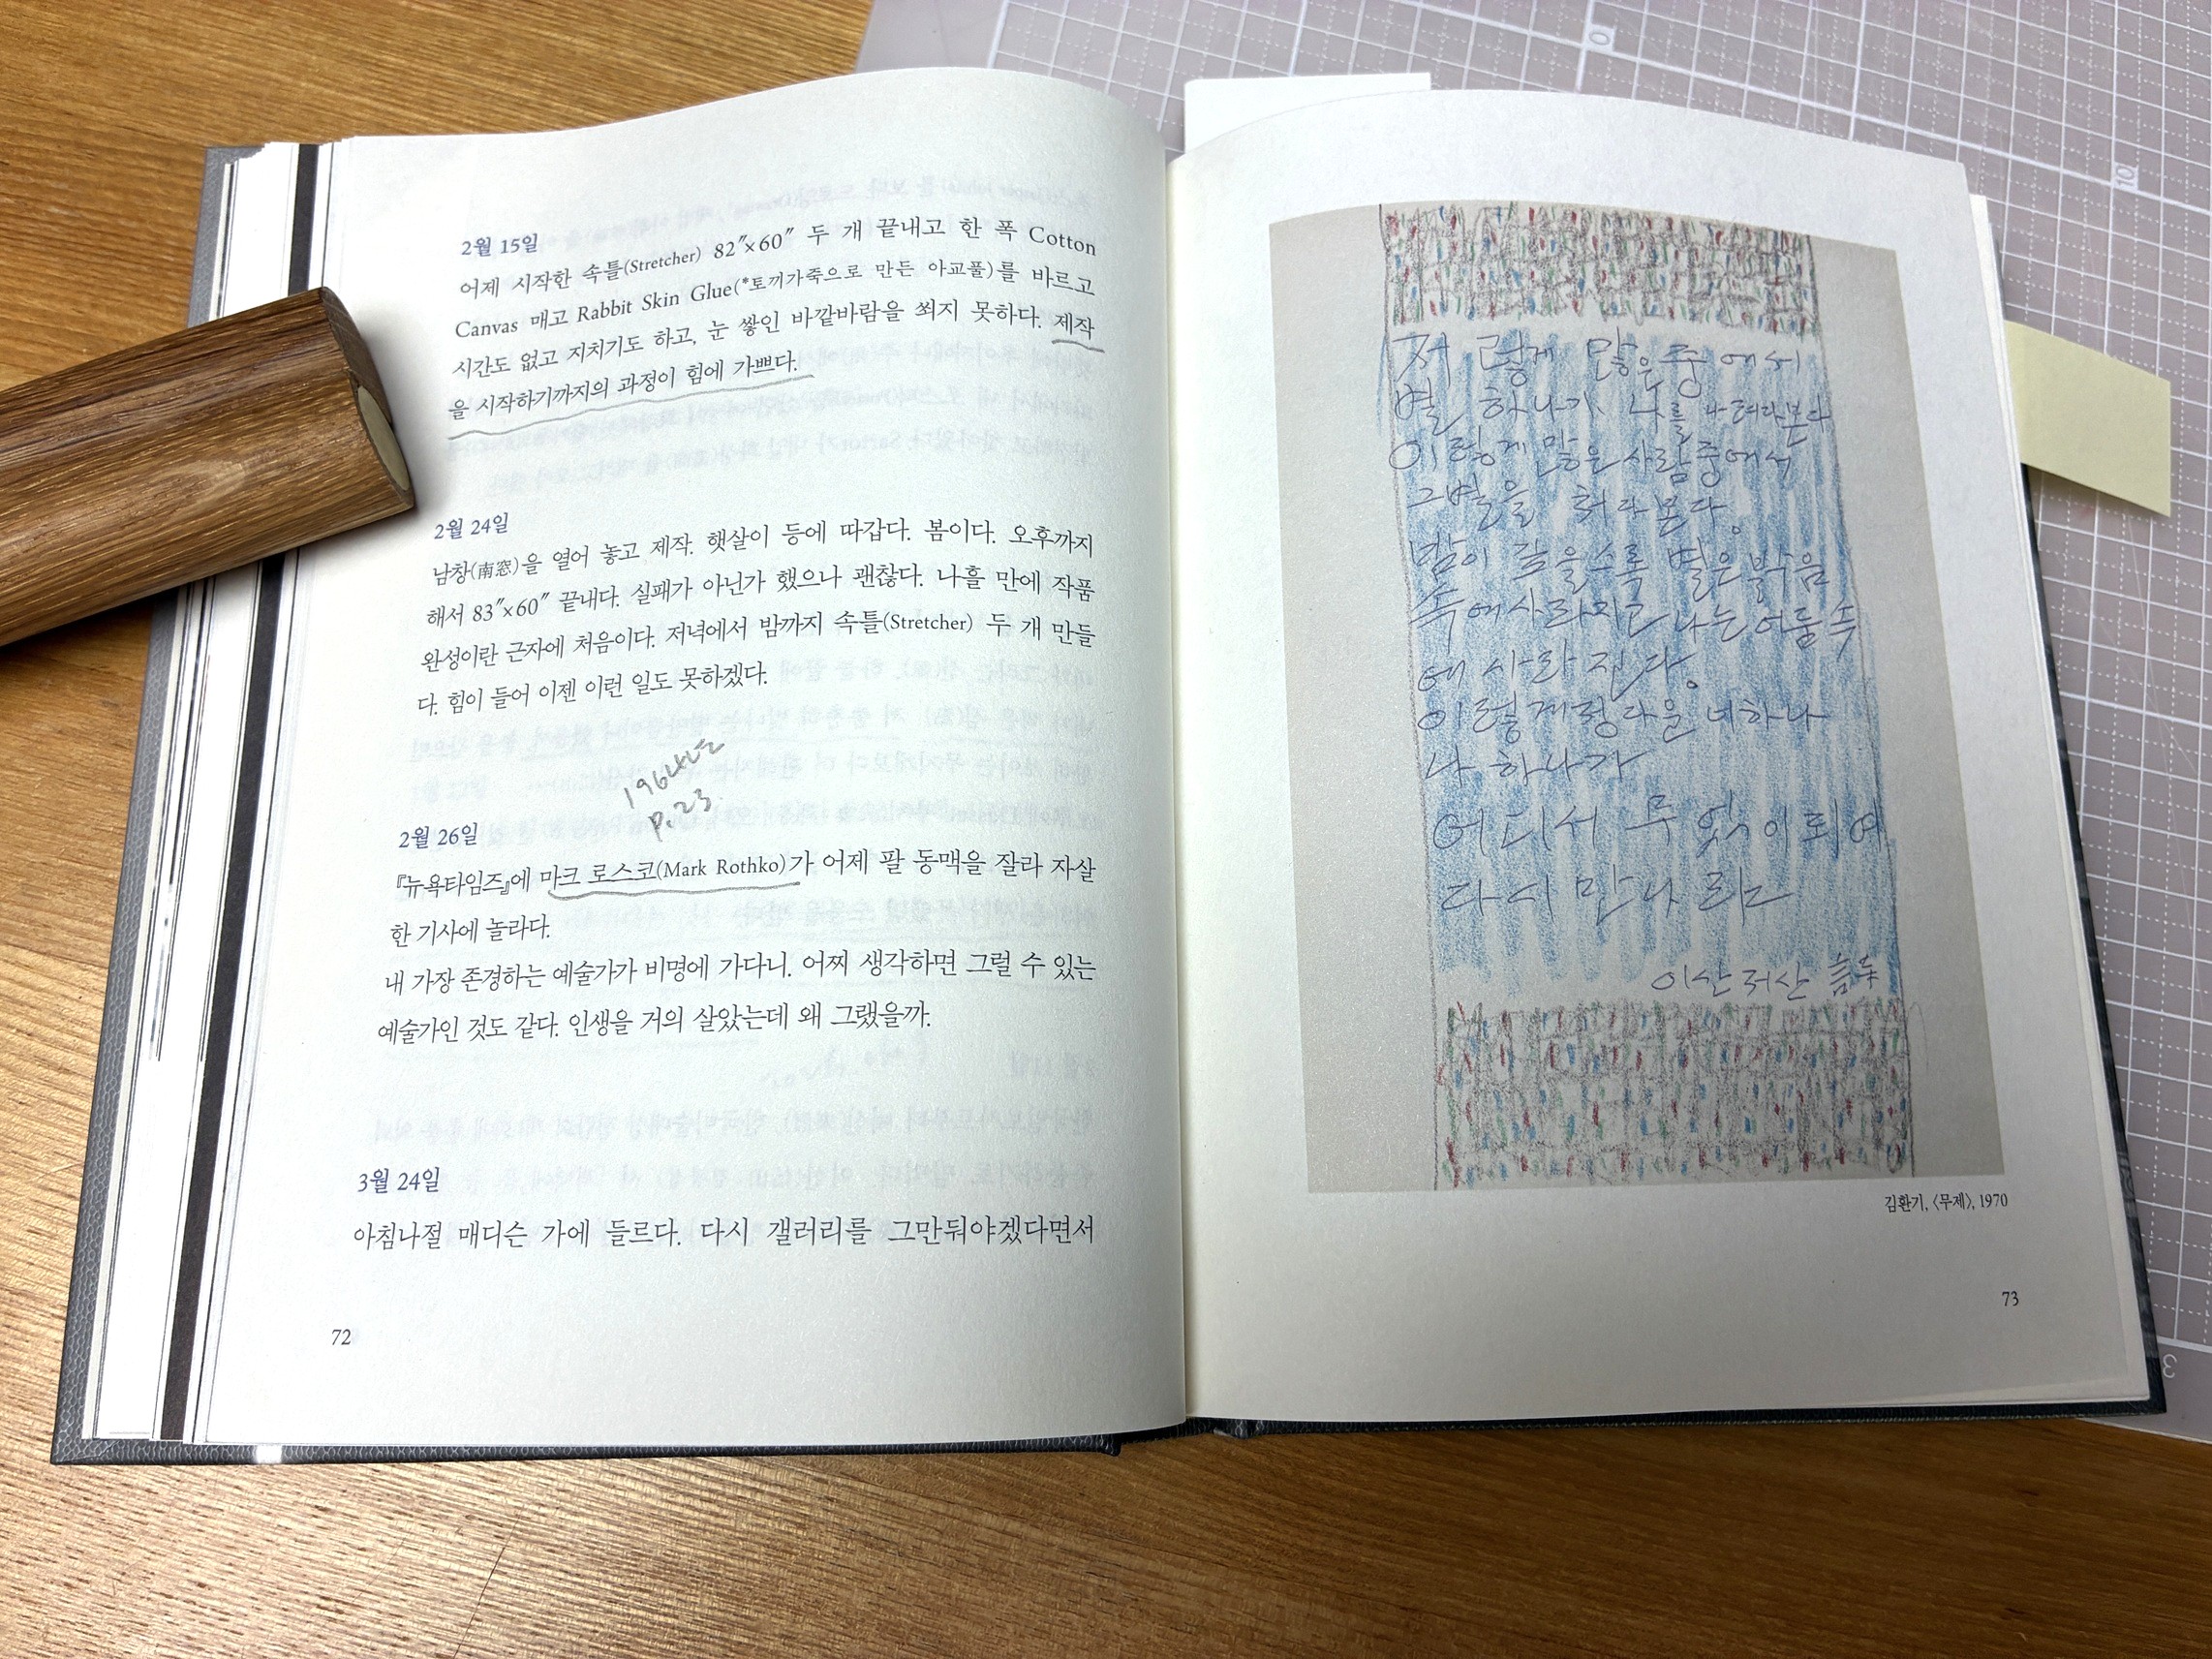 2월 15일
어제 시작한 속틀(Stretcher) 82″×60″ 두 개 끝내고 한 폭 Cotton
Canvas 매고 Rabbit Skin Glue(*토끼가죽으로 만든 아교풀)를 바르고
시간도 없고 지치기도 하고, 눈 쌓인 바깥바람을 쐬지 못하다. 제작
을 시작하기까지의 과정이 힘에 가쁘다.
2월 24일
남창(南窓)을 열어 놓고 제작. 햇살이 등에 따갑다. 봄이다. 오후까지
해서 83″×60″ 끝내다. 실패가 아닌가 했으나 괜찮다. 나흘 만에 작품
완성이란 근자에 처음이다. 저녁에서 밤까지 속틀(Stretcher) 두 개 만들
다. 힘이 들어 이젠 이런 일도 못하겠다.
1964년
p.23.
2월 26일
『뉴욕타임즈』에 마크 로스코(Mark Rothko)가 어제 팔 동맥을 잘라 자살
한 기사에 놀라다.
내 가장 존경하는 예술가가 비명에 가다니. 어찌 생각하면 그럴 수 있는
예술가인 것도 같다. 인생을 거의 살았는데 왜 그랬을까.
3월 24일
아침나절 매디슨 가에 들르다. 다시 갤러리를 그만둬야겠다면서
72
저렇게 많은 중에서
별 하나가 나를 나려다본다
이렇게 많은 사람중에서
그별을 쳐다본다.
밤이 깊을수록 별은 밝음
속에 사라지고 나는 어둠속
에 사라진다.
이렇게 정다운 너하나
나 하나가
어디서 무엇이 되여
다시 만나랴
이산 저산
김환기, 〈무제〉, 1970
73
0
10
3